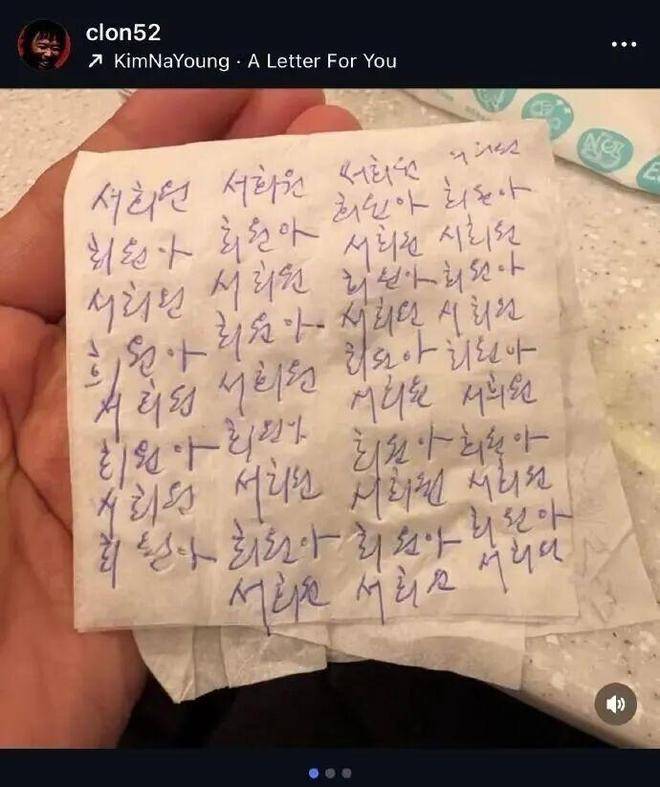 clon52
KimNaYoung · A Letter For You
서희원 서희원 서희원 서희원
희원아 희원아
희원아 희원아 서희원 서희원
서희원 서희원 희원아 희원아
희원아 서희원 서희원
희원아 희원아 희원아
서희원 서희원 서희원 서희원
희원아 희원아 희원아 희원아
서희원 서희원 서희원 서희원
희원아 희원아 희원아 희원아
서희원 서희원 서희원